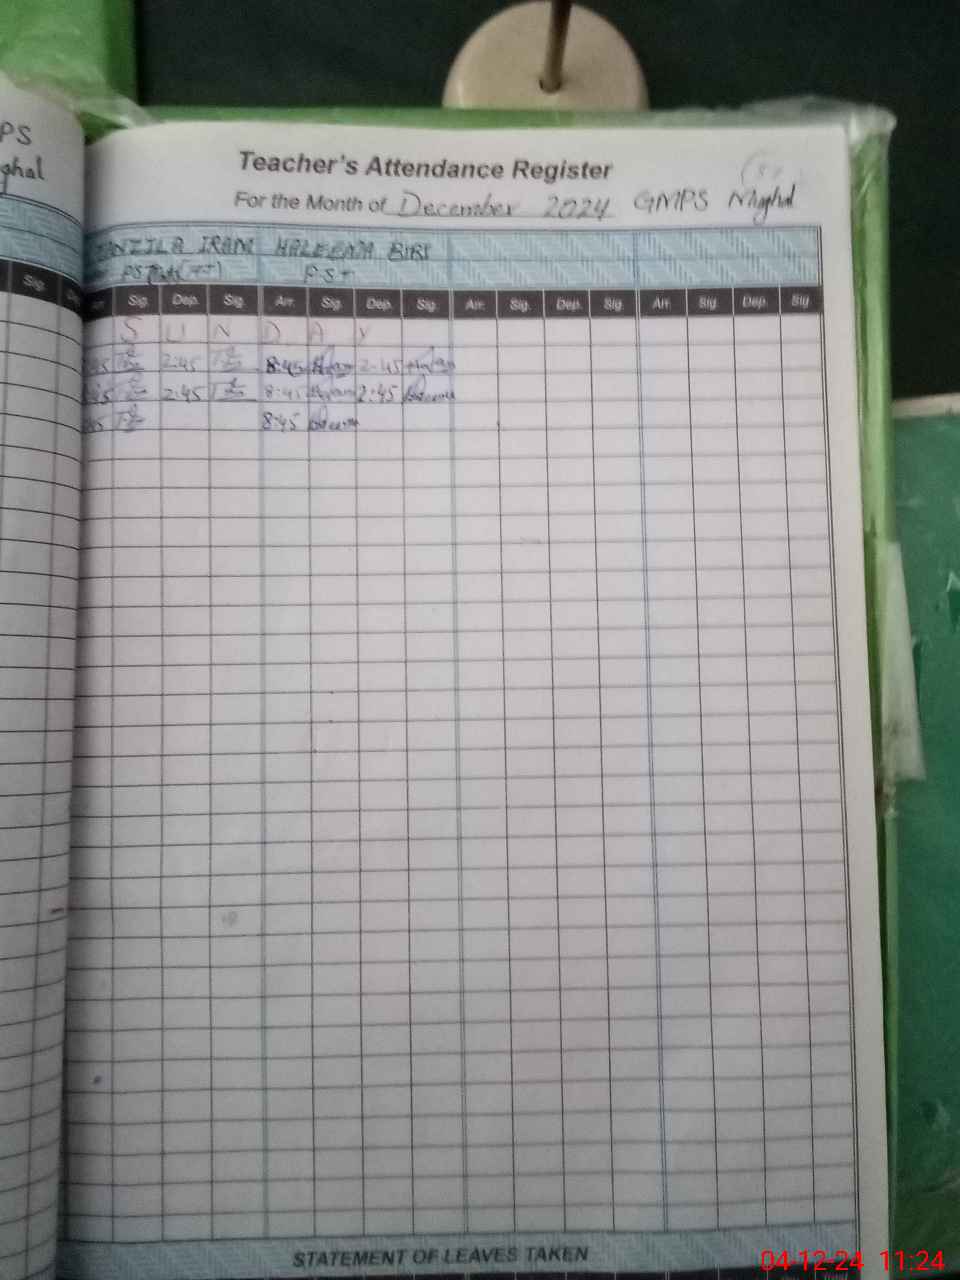 PS
ghal
Teacher's Attendance Register
For the Month of December 2024 GMPS Mughal
TANZILA IRAM HALEEMA BIBI
PST
Sig.
Sig. Dep. Sig. Arr. Sig. Dep. Sig. Arr. Sig. Dep. Sig. Arr. Sig. Dep. Sig
S U N D A Y
2:45 8:45 2:45
2:45 8:45 2:45
8:45
STATEMENT OF LEAVES TAKEN
04-12-24 11:24